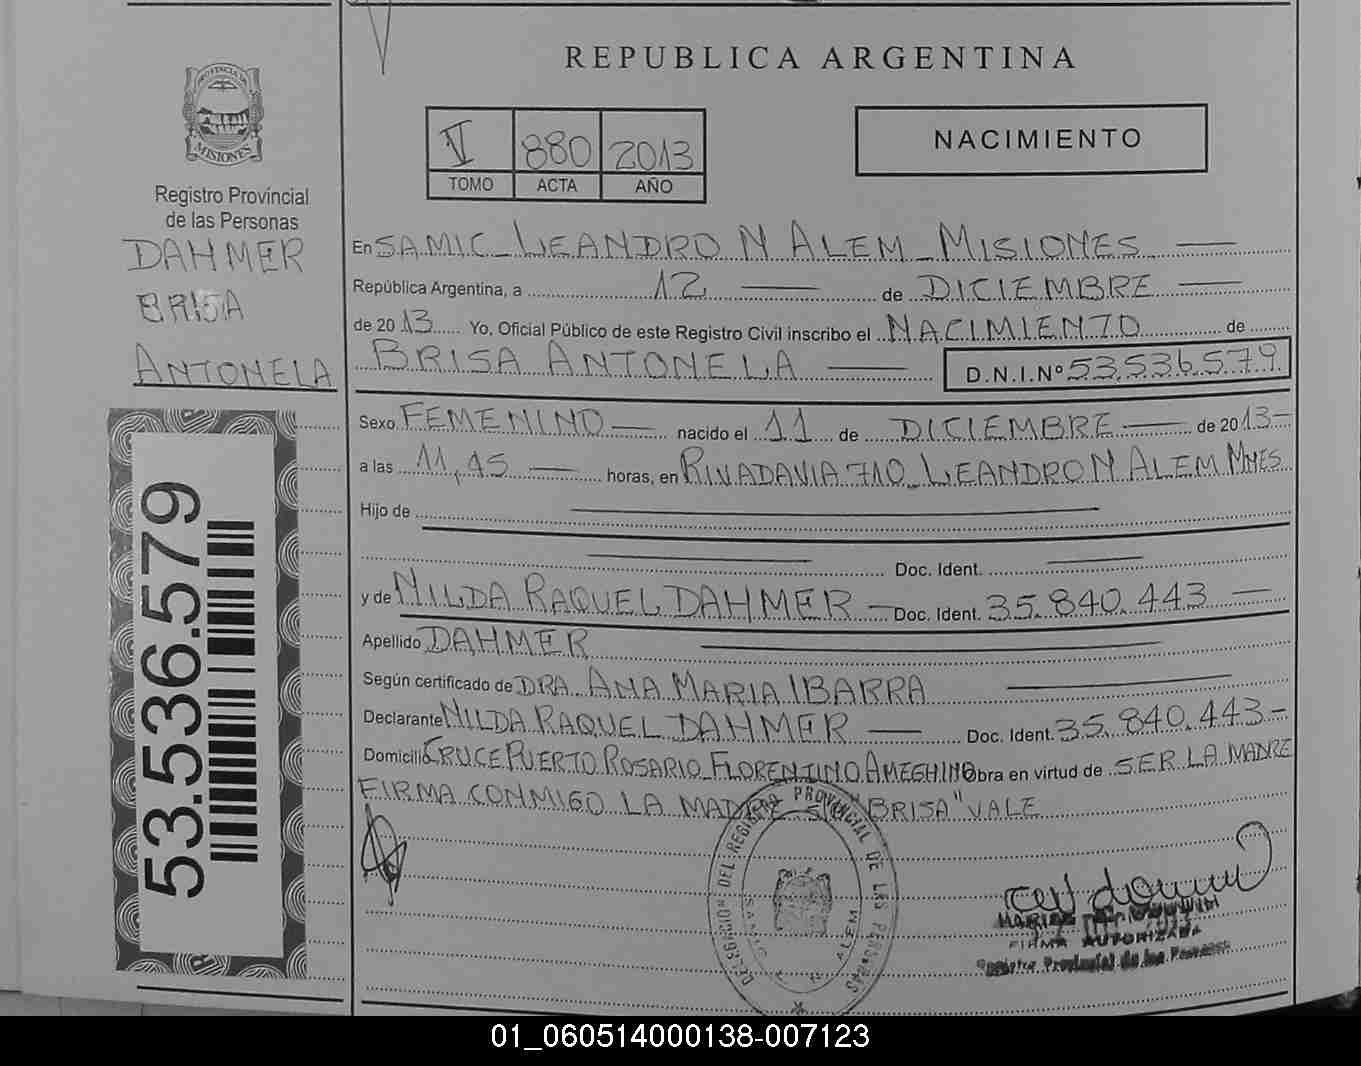 REPUBLICA ARGENTINA
PROVINCIA DE MISIONES
Registro Provincial
de las Personas
DAHMER
BRISA
ANTONELA
53.536.579
V 880 2013
TOMO ACTA AÑO
NACIMIENTO
En SAMIC - LEANDRO N ALEM - MISIONES
República Argentina, a 12 de DICIEMBRE
de 2013 Yo, Oficial Público de este Registro Civil inscribo el NACIMIENTO de
BRISA ANTONELA D.N.I.Nº 53.536.579
Sexo FEMENINO nacido el 11 de DICIEMBRE de 2013
a las 11,45 horas, en RIVADAVIA 710 - LEANDRO N ALEM Mnes
Hijo de
Doc. Ident.
y de NILDA RAQUEL DAHMER Doc. Ident. 35.840.443
Apellido DAHMER
Según certificado de DRA. ANA MARIA IBARRA
Declarante NILDA RAQUEL DAHMER Doc. Ident. 35.840.443
Domicilio CRUCE PUERTO ROSARIO - FLORENTINO AMEGHINO Obra en virtud de SER LA MADRE
FIRMA CONMIGO LA MADRE S/R "BRISA" VALE
DELEGACION DEL REGISTRO PROVINCIAL DE LAS PERSONAS
SAMIC L. N. ALEM
FIRMA AUTORIZADA
Registro Provincial de las Personas
01_060514000138-007123